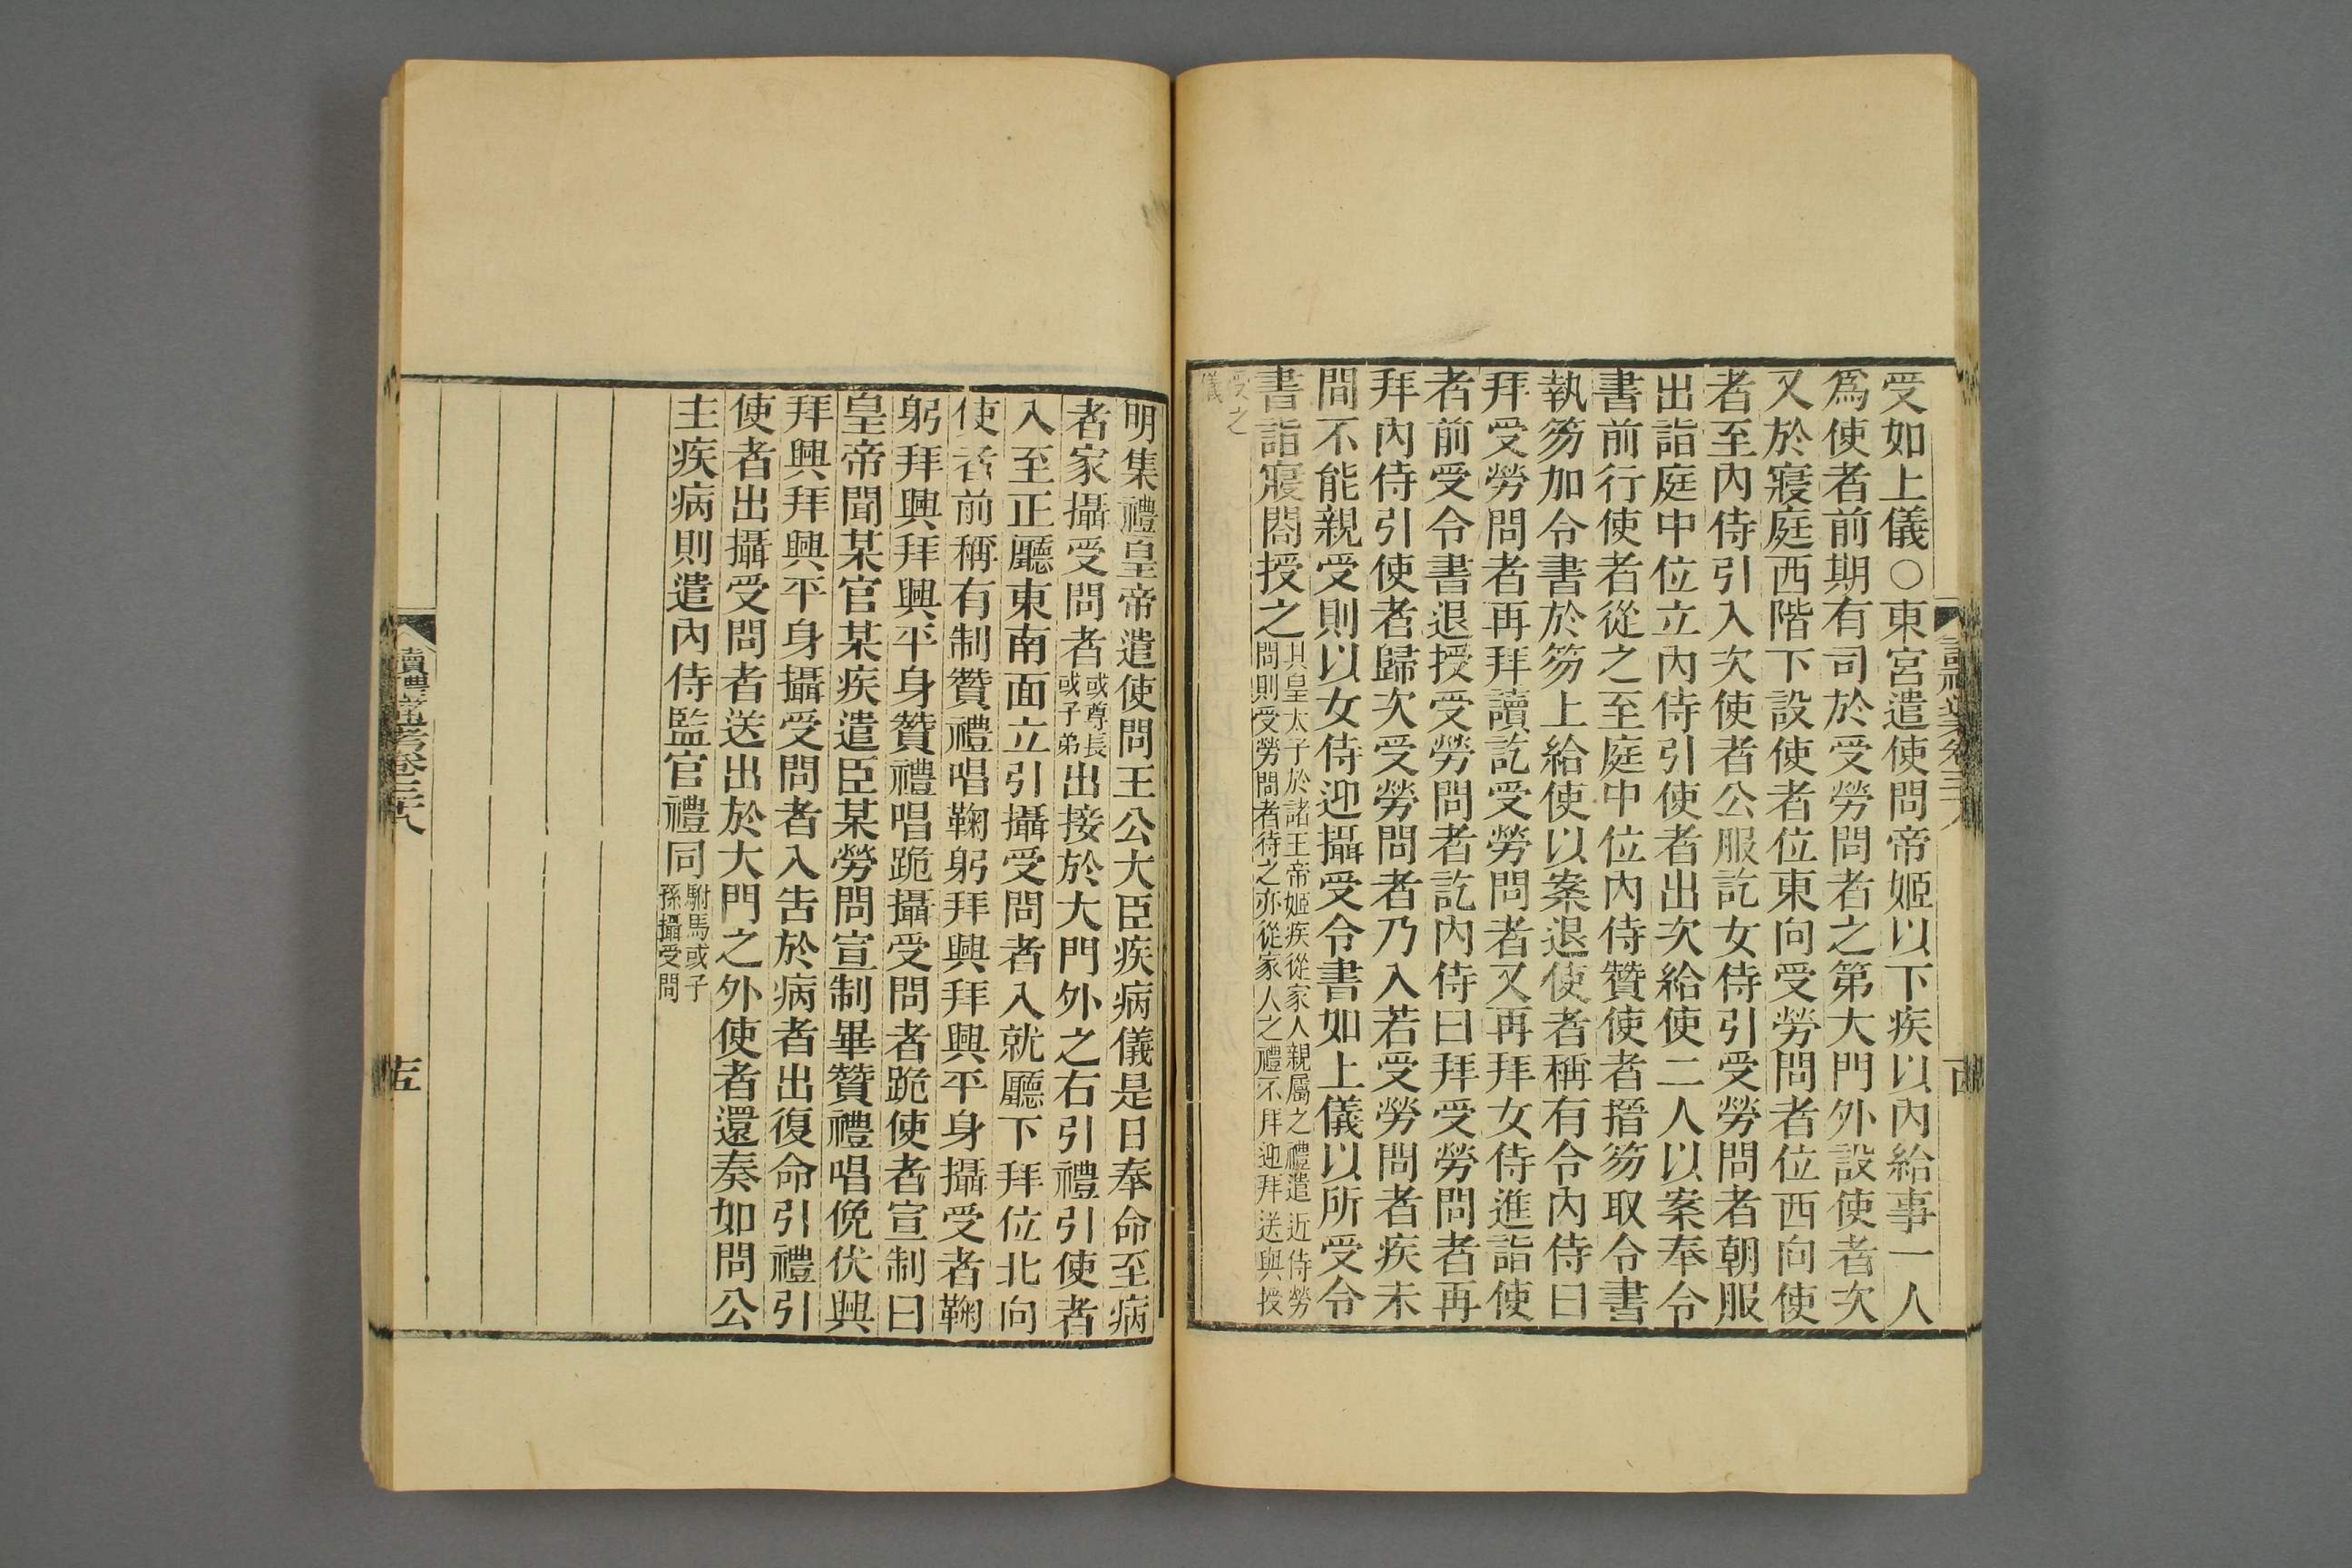 受如上儀○東宮遣使問帝姬以下疾以內給事一人
爲使者前期有司於受勞問者之第大門外設使者次
又於寢庭西階下設使者位東向受勞問者位西向使
者至內侍引入次使者公服訖女侍引受勞問者朝服
出詣庭中位立內侍引使者出次給使二人以案奉令
書前行使者從之至庭中位內侍贊使者搢笏取令書
執笏加令書於笏上給使以案退使者稱有令內侍曰
拜受勞問者再拜讀訖受勞問者又再拜女侍進詣使
者前受令書退授受勞問者訖內侍曰拜受勞問者再
拜內侍引使者歸次受勞問者乃入若受勞問者疾未
間不能親受則以女侍迎攝受令書如上儀以所受令
書詣寢閤授之其皇太子於諸王帝姬疾從家人親屬之禮遣近侍勞
問則受勞問者待之亦從家人之禮不拜迎拜送與授
受之
儀
明集禮皇帝遣使問王公大臣疾病儀是日奉命至病
者家攝受問者或尊長或子弟出接於大門外之右引禮引使者
入至正廳東南面立引攝受問者入就廳下拜位北向
使者前稱有制贊禮唱鞠躬拜興拜興平身攝受者鞠
躬拜興拜興平身贊禮唱跪攝受問者跪使者宣制曰
皇帝聞某官某疾遣臣某勞問宣制畢贊禮唱俛伏興
拜興拜興平身攝受問者入告於病者出復命引禮引
使者出攝受問者送出於大門之外使者還奏如問公
主疾病則遣內侍監官禮同駙馬或子孫攝受問
讀禮通考卷三十八
十五